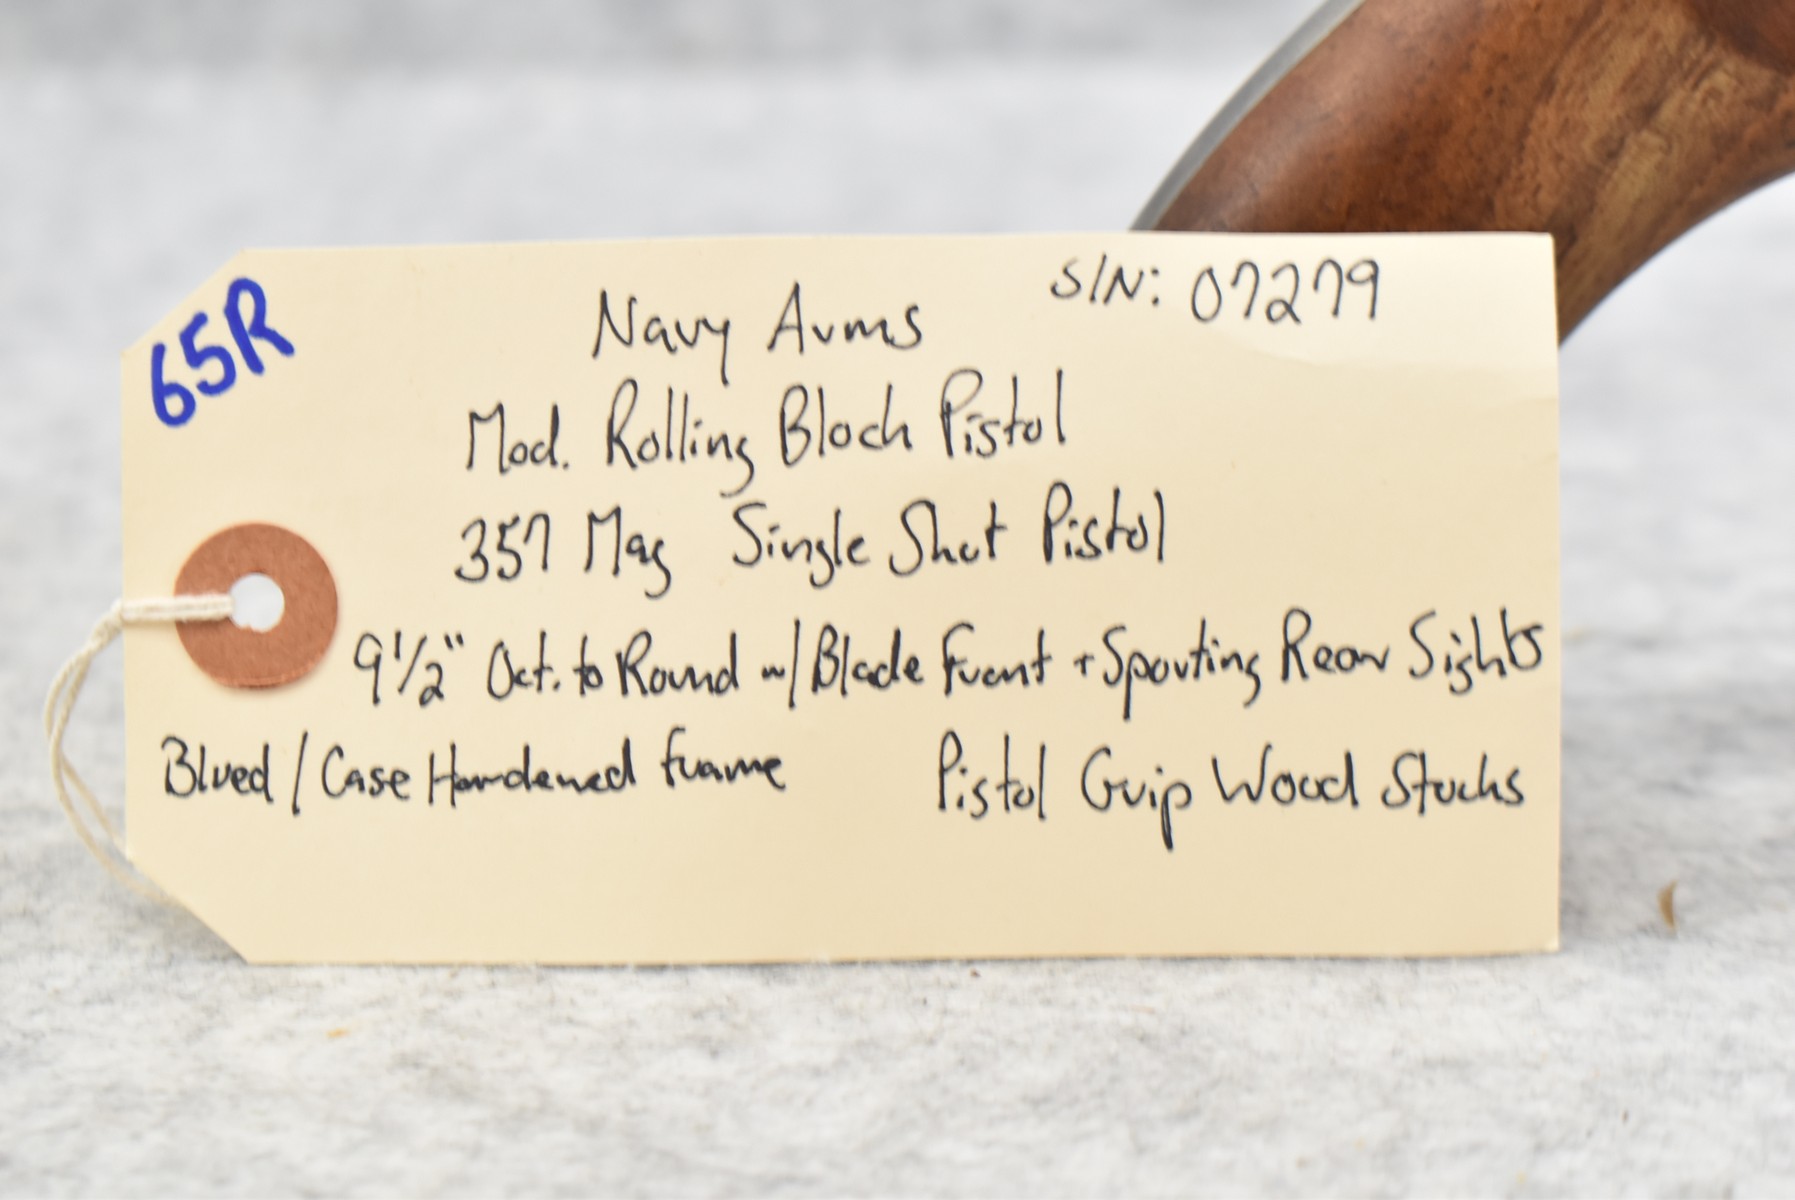 65R
Navy Arms
S/N: 07279
Mod. Rolling Block Pistol
357 Mag Single Shot Pistol
9 1/2" Oct. to Round w/ Blade Front + Sporting Rear Sights
Blued / Case Hardened Frame
Pistol Grip Wood Stocks